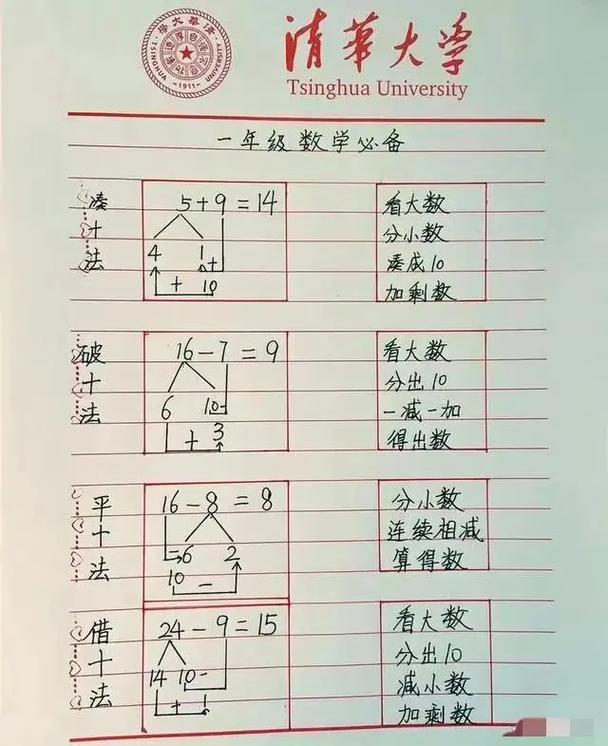 清華大学
TSINGHUA UNIVERSITY
-1911-
清華大学
Tsinghua University
一年级数学必备
凑十法
5+9=14
4 1 +
+ 10
看大数
分小数
凑成10
加剩数
破十法
16-7=9
6 10-
+ 3
看大数
分出10
一减一加
得出数
平十法
16-8=8
=6 2
10 -
分小数
连续相减
算得数
借十法
24-9=15
14 10-
+ 1
看大数
分出10
减小数
加剩数